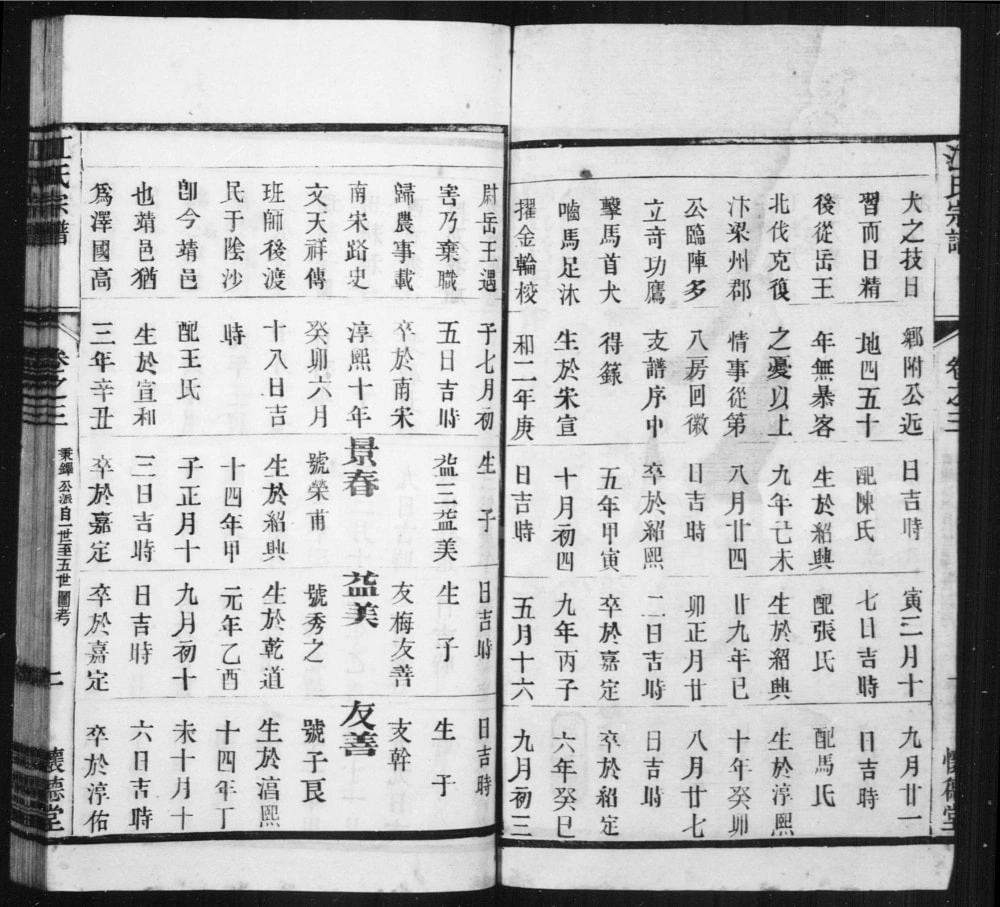 江氏宗譜
卷之三
懷德堂
犬之技日
習而日精
後從岳王
北伐克復
汴梁州郡
公臨陣多
立奇功鷹
擊馬首犬
嚙馬足沐
擢金輪校
鄉附公远
地四五十
年無暴客
之憂以上
情事從第
八房回徽
支譜序中
得錄
生於宋宣
和二年庚
日吉時
配陳氏
生於紹興
九年己未
八月廿四
日吉時
卒於紹熙
五年甲寅
十月初四
日吉時
寅二月十
七日吉時
配張氏
生於紹興
廿九年已
卯正月廿
二日吉時
卒於嘉定
九年丙子
五月十六
九月廿一
日吉時
配馬氏
生於淳熙
十年癸卯
八月廿七
日吉時
卒於紹定
六年癸巳
九月初三
尉岳王遇
害乃棄職
歸農事載
南宋路史
文天祥傳
班師後渡
民于陰沙
卽今靖邑
也靖邑猶
為澤國高
子七月初
五日吉時
卒於南宋
淳熙十年
癸卯六月
十八日吉
時
配王氏
生於宣和
三年辛丑
生子
益三益美
景春
號榮甫
生於紹興
十四年甲
子正月十
三日吉時
卒於嘉定
日吉時
生子
友梅友善
益美
號秀之
生於乾道
元年乙酉
九月初十
日吉時
卒於嘉定
日吉時
生子
支幹
友善
號子良
生於淳熙
十四年丁
未十月十
六日吉時
卒於淳佑
江氏宗譜
卷之三
秉鐸公派自一世至五世圖考
二
懷德堂